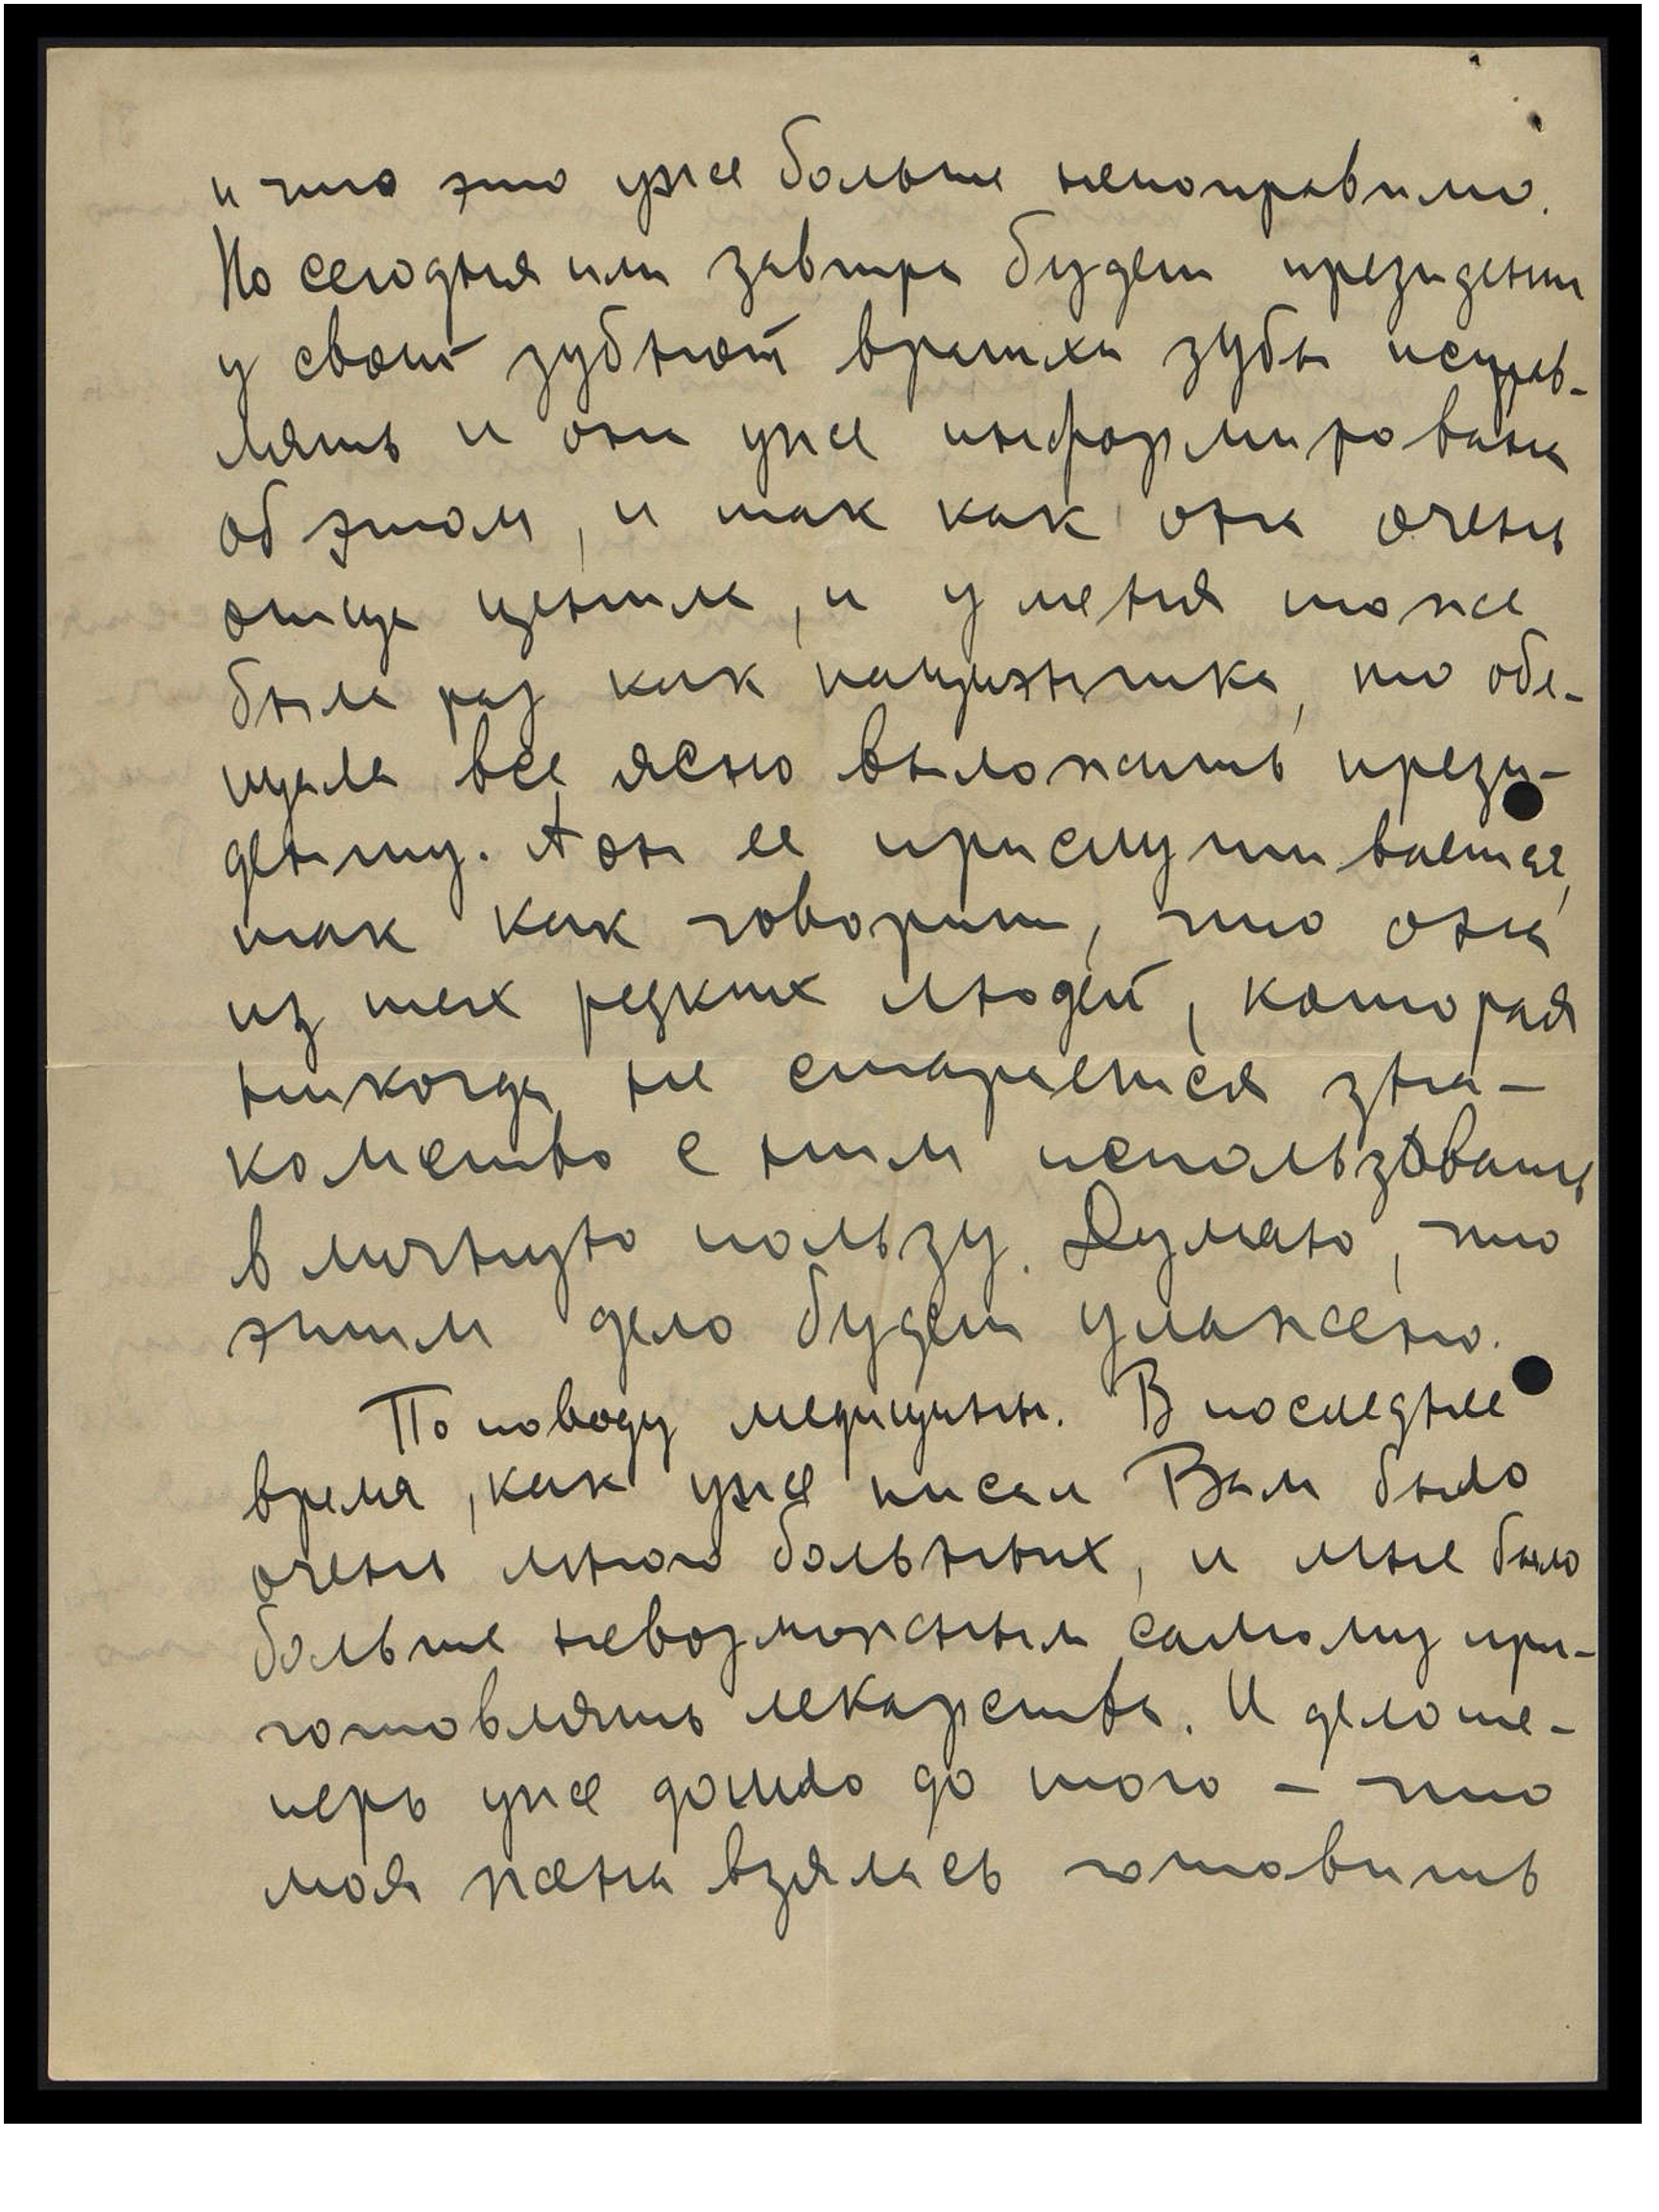 и что это уже больше непоправимо.
Но сегодня или завтра будет президент
у своей зубной врачихи зубы исправ-
лять и она уже информирована
об этом, и так как она очень
отца ценила, и у меня тоже
была раз как пациентка, то обе-
щала все ясно выложить прези-
денту. А он ее прислушивается,
так как говорит, что она
из тех редких людей, которая
никогда не старается зна-
комство с ним использовать
в личную пользу. Думаю, что
этим дело будет улажено.
По поводу медицины. В последнее
время, как уже писал Вам было
очень много больных, и мне было
больше невозможным самому при-
готовлять лекарства. И дело те-
перь уже дошло до того – что
моя жена взялась готовить